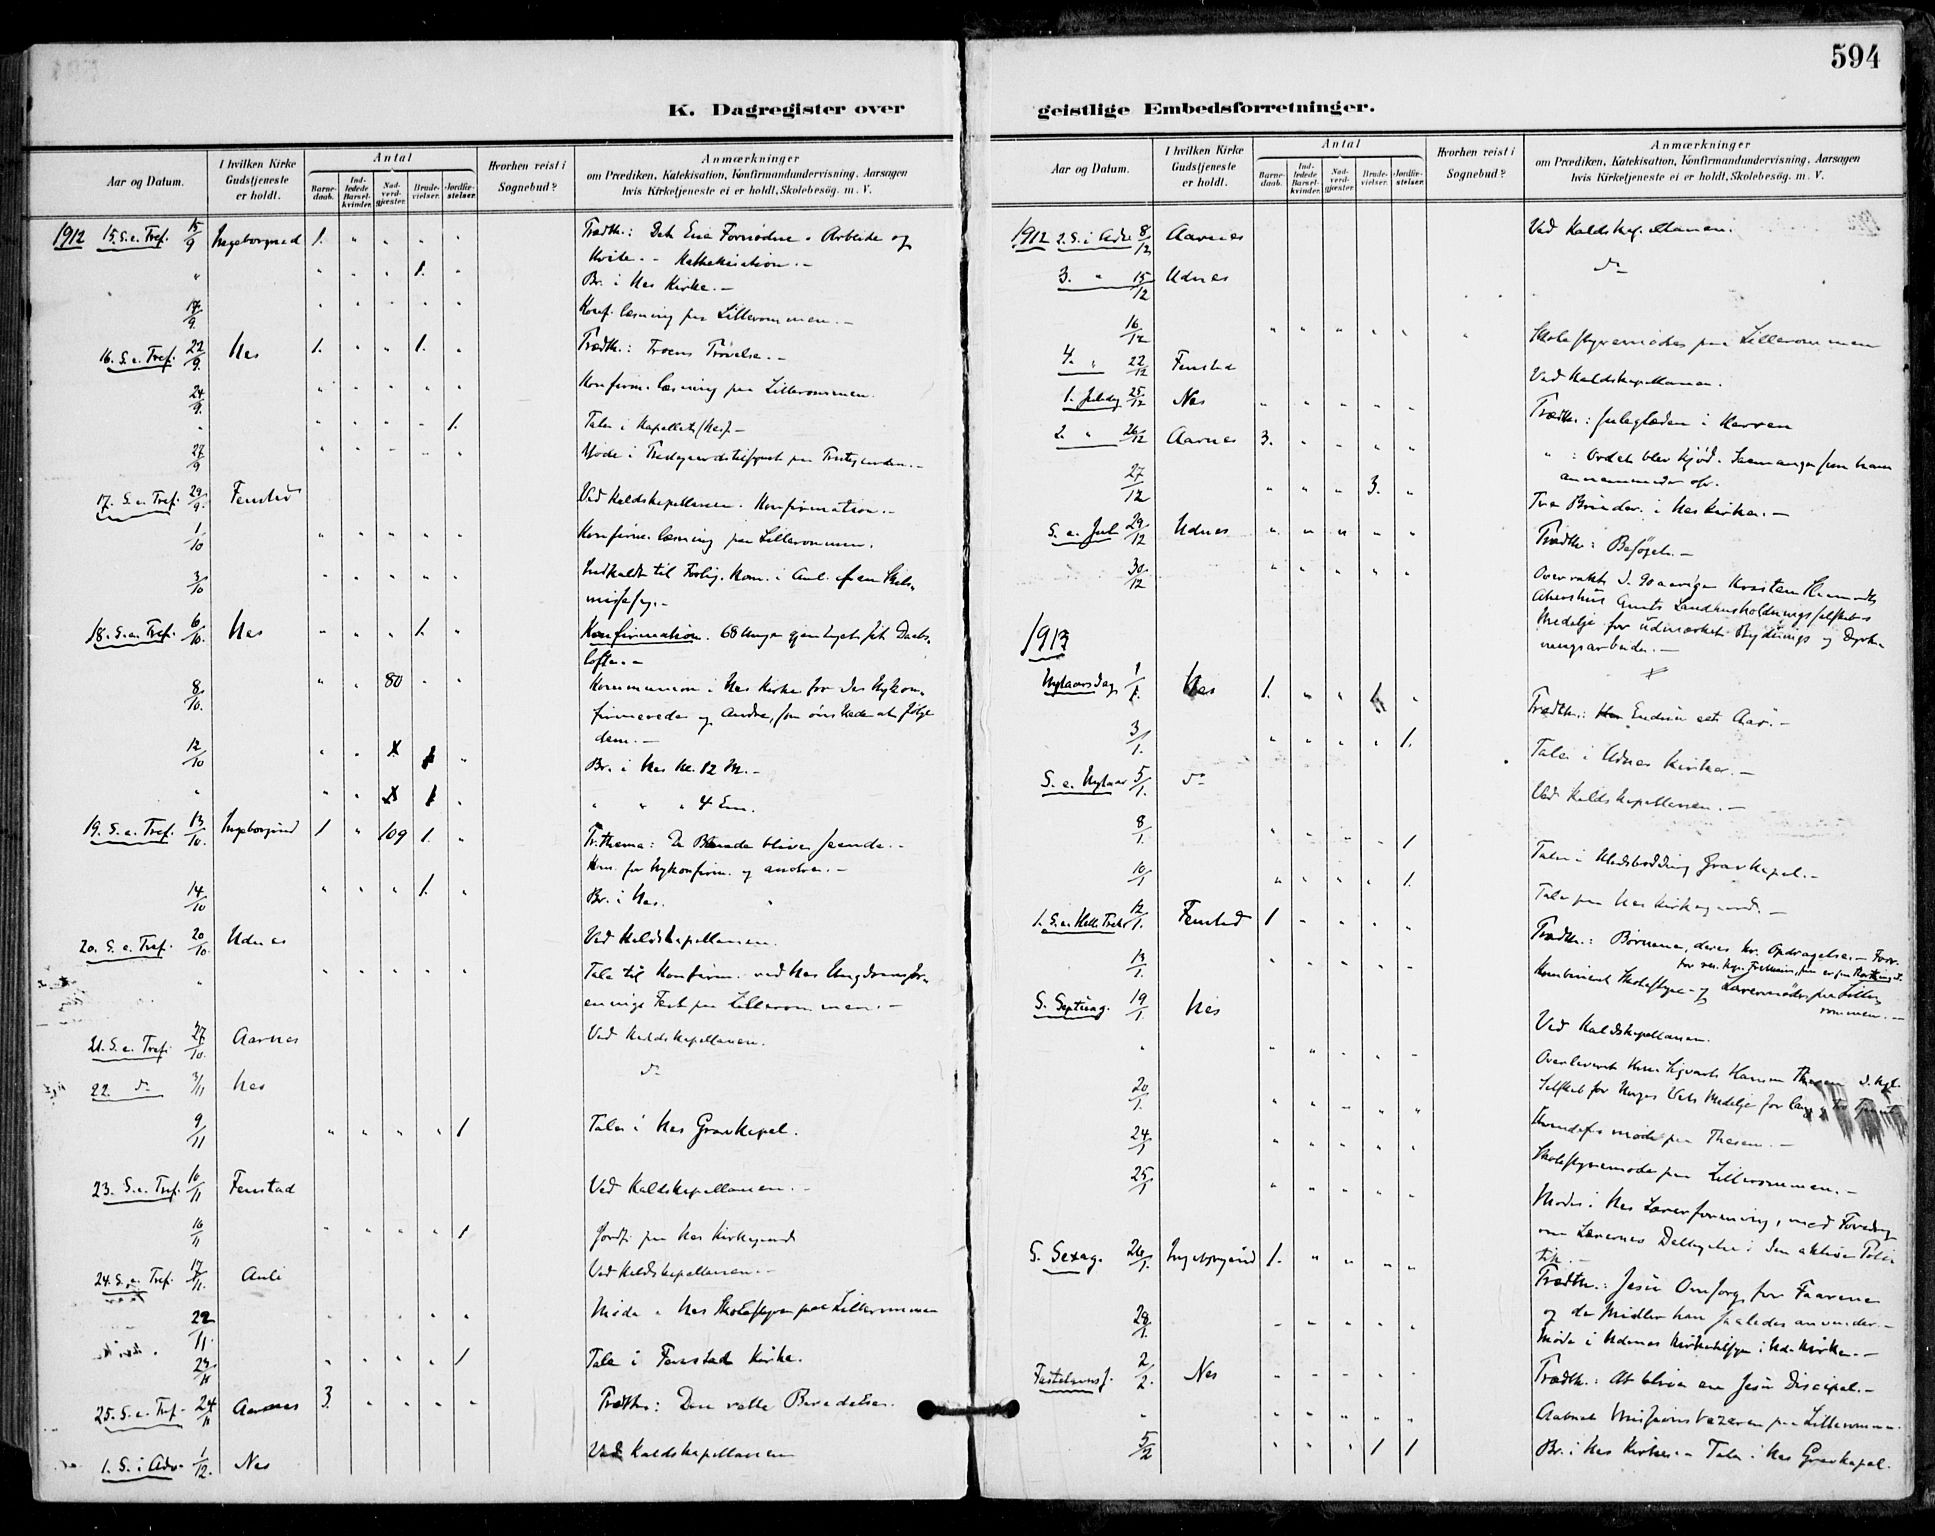 594
K. Dagregister over
geistlige Embedsforretninger.
Aar og Datum.
I hvilken Kirke
Gudstjeneste
er holdt.
Antal
Barne-
daab.
Ind-
ledede
Barsel-
kvinder.
Nad-
verd-
gjæster.
Brude-
vielser.
Jordfæ-
stelser.
Hvorhen reist i
Sognebud?
Anmærkninger
om Prædiken, Katekisation, Konfirmandundervisning, Aarsagen
hvis Kirketjeneste ei er holdt, Skolebesøg. m. V.
1912 15. S. e. Tref. 15/9 Ingeborgrud 1. " " " " Prædth.: Det Ene Fornødne. Arbeide og
Hvile. - Kathekisation. -
" " " " 1. " Br. i Nes Kirke. -
17/9. " " " " " Konf. læsning paa Lillerommen. -
16. S. e. Tref. 22/9. Nes 1. " " 1. " Prædth.: Troens Prøvelse. -
24/9. " " " " " Konfirm. læsning paa Lillerommen.
" " " " " 1. Tale i Kapellet (Nes). -
27/9 " " " " " Møde i
17. S. e. Tref. 29/9. Fenstad Ved Kaldskapellanen. Konfirmation. -
1/10 " " " " " Konfirm. læsning paa Lillerommen.
3/10 " " " " " Indkaldt til Forlig. kom. i Anl. af en Skils-
missesag. -
18. S. e. Tref. 6/10. Nes " " " 1. " Konfirmation. 68 Unge gjentoget sit Daabs-
løfte. -
8/10. " " 80 " " Kommunion i Nes Kirke for de Nykon-
firmerede og Andre, som ønskede at følge
dem. -
12/10 " " 1 " Br. i Nes Kl. 12 M. -
" " " 1 " " " " 4 Em.
19. S. e. Tref. 13/10. Ingeborgrud 1 " 109 1. " Pr. thema: De Blinde bliver seende. -
Kom. for Nykonfirm. og andre. -
14/10 " " " 1. " Br. i Nes.
20. S. e. Tref. 20/10 Udnes Ved Kaldskapellanen.
" " " " " " Tale til Konfirm. ved Nes Ungdomsfor-
enings Fest paa Lillerommen. -
21. S. e. Tref. 27/10. Aarnes Ved Kaldskapellanen.
22. do 3/11 Nes do
9/11 " " " " 1 Tale i Nes Gravkapel.
23. S. e. Tref. 10/11 Fenstad Ved Kaldskapellanen. -
16/11 " " " " 1 Jordf. paa Nes Kirkegaard
24. S. e. Tref. 17/11. Auli Ved Kaldskapellanen. -
22/11. " " " " " Møde i Nes Skolestyre paa Lillerommen
23/11 " " " " 1 Tale i Fenstad Kirke.
25. S. e. Tref. 24/11 Aarnes 3. " " " " Prædth.: Den rette Beredelse.
1. S. i Adv. 1/12. Nes Ved Kaldskapellanen
Aar og Datum.
I hvilken Kirke
Gudstjeneste
er holdt.
Antal
Barne-
daab.
Ind-
ledede
Barsel-
kvinder.
Nad-
verd-
gjæster.
Brude-
vielser.
Jordfæ-
stelser.
Hvorhen reist i
Sognebud?
Anmærkninger
om Prædiken, Katekisation, Konfirmandundervisning, Aarsagen
hvis Kirketjeneste ei er holdt, Skolebesøg. m. V.
1912 2. S. i Adv. 8/12 Aarnes Ved Kaldskapellanen.
3. " 15/12 Udnes do
16/12 " " " " " " Skolestyremøde paa Lillerommen
4. " 22/12 Fenstad Ved Kaldskapellanen.
1. Juledag 25/12 Nes " " " " " Prædth.: Juleglæden i Herren
2. " 26/12 Aarnes 3. " " " " " : Ordet blev Kjød. Saamange som ham
annammede osv.
27/12 " " " 3. " Tre Bruder i Nes Kirke. -
S. e. Jul 29/12 Udnes " " " " " Prædth.: Besøget. -
30/12 " " " " " Overrakte d. 90 aarige
Akershus Amts Landhusholdnings selskabs
Medalje for udmærket Rydnings og Dyrk-
ningsarbeide. -
1913
Nytaarsdag 1/1. Nes 1. " " 1 " Prædth.: Endnu eet Aar. -
3/1. " " " " 1. Tale i Udnes Kirke. -
S. e. Nytaar 5/1. do Ved Kaldskapellanen. -
8/1. " " " " 1 Tale i Gravkapel. -
10/1 " " " " 1. Tale paa Nes Kirkegaard. -
1. S. e. Hell. Trek. 12/1. Fenstad 1 " " " " Prædth.: Børnene, deres kr. Opdragelse. -
13/1. " " " " " Kombineret Skolestyre- og Lærermøde paa Lille-
rommen. -
S. Septuag. 19/1. Nes Ved Kaldskapellanen.
" " " " " " Overleveret Hans Sigvart Hansen Thesen d. Kgl.
Selskab for Norges Vels Medalje for lang
20/1. " " " " " møde paa Thesen. -
24/1 " " " " " Skolestyremøde paa Lillerommen. -
25/1 " " " " " Møde i Nes Lærerforening, med Foredrag
om Lærernes Deltagelse i den aktive Poli-
tik. -
S. Sexag. 26/1. Ingeborgrud 1. " " " " Prædth.: Jesu Omsorg for Faarene
og de Midler han saaledes anvender. -
29/1. " " " " " Møde i Udenes Kirketilsyn i Ud. Kirke. -
Fastelavns s. 2/2. Nes " " " " " Prædth.: At blive en Jesu Discipel. -
" " " " " " Aabnet Missionsbazaren paa Lillerommen.
5/2 " " " 1 1 Br. i Nes Kirke. - Tale i Nes Gravkapel.